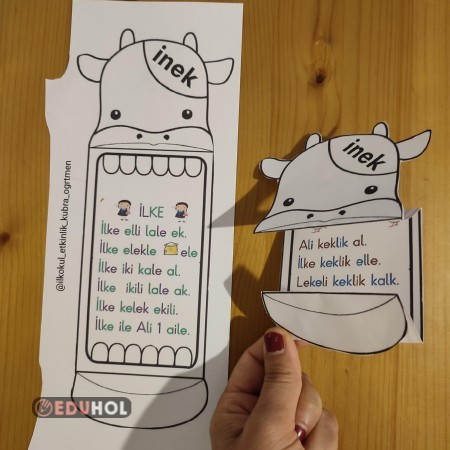 inek
İLKE
İlke elli lale ek.
İlke elekle ele
İlke iki kale al.
İlke ikili lale ak.
İlke kelek ekili.
İlke ile Ali 1 aile.
@ilkokul_etkinlik_kubra_ogrtmen
inek
Ali keklik al.
İlke keklik elle.
Lekeli keklik kalk.
EDUHOL